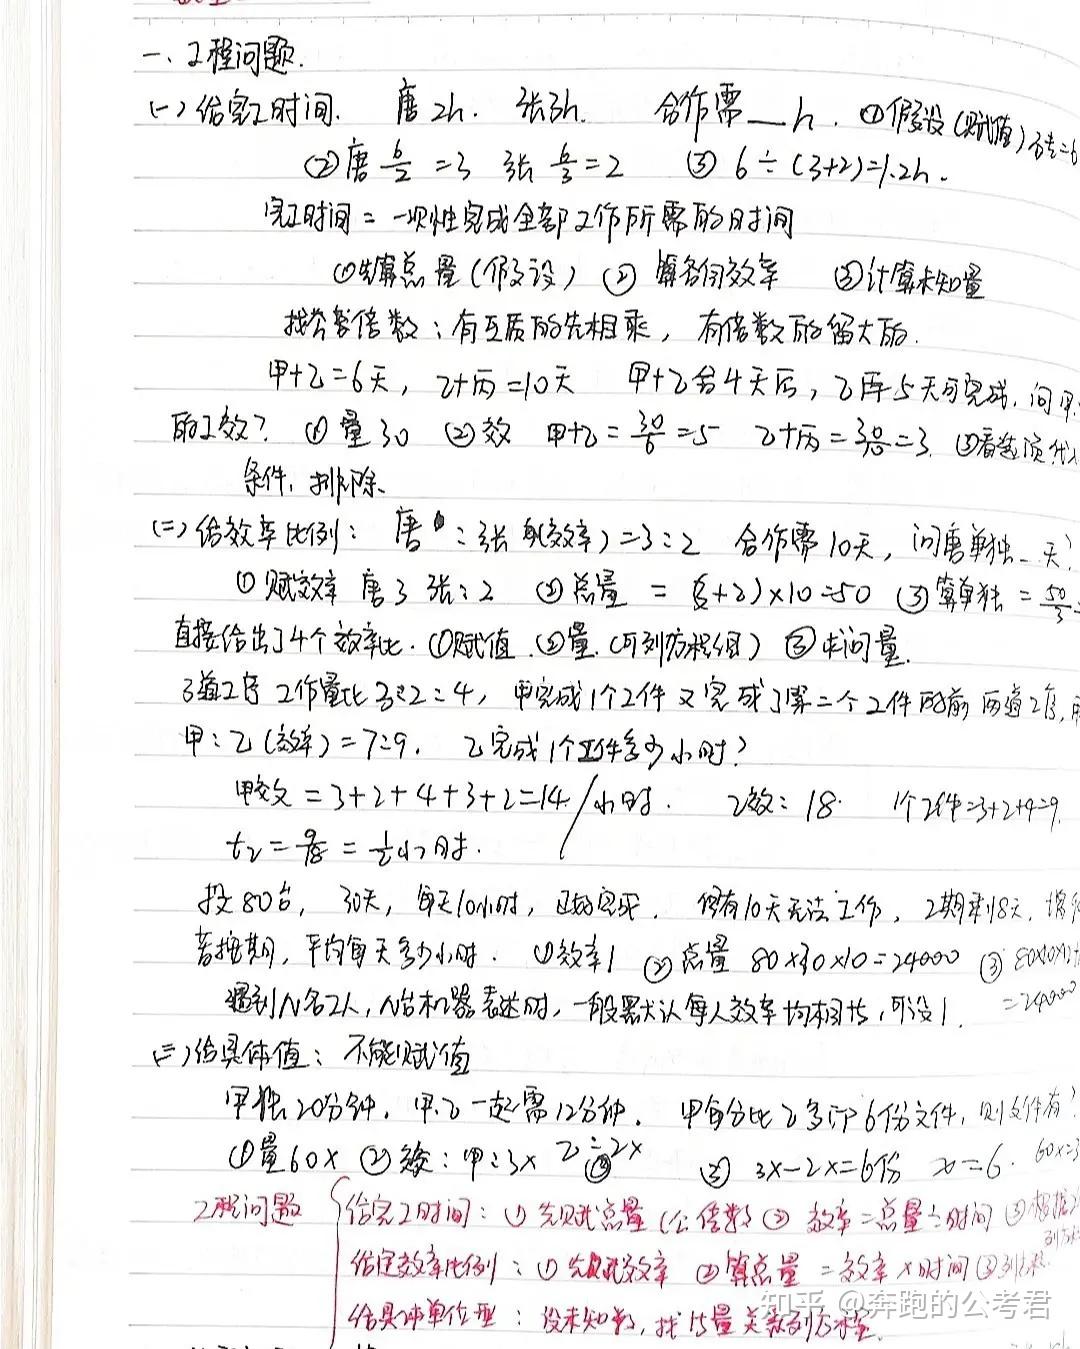 一、工程问题.
(一)给完工时间. 唐2h. 张3h. 合作需__h. ①假设(赋值)
②唐 6/2 =3 张 6/3 =2 ③ 6÷(3+2)=1.2h.
完工时间 = 一次性完成全部工作所需的时间
①先算总量(假设) ② 算各自效率 ③计算未知量
找公倍数：有互质的先相乘，有倍数的留大的.
甲+乙=6天，乙+丙=10天 甲+乙合4天后，乙再5天可完成. 问甲
的工效？ ①量30 ②效 甲+乙= 30/6 =5 乙+丙= 30/10 =3. ③看选项代入
条件，排除.
(二)给效率比例： 唐：张(效率)=3：2 合作需10天，问唐单独_天？
①赋效率 唐3 张：2 ②总量 = (3+2)×10=50 ③算单独 = 50/3
直接给出了4个效率比. ①赋值 ②量.(可列方程组) ③求问量.
3道工序 工作量比 3：2：4，甲完成1个工件又完成了第二个工件的前两道工序,
甲：乙(效率)=7：9. 乙完成1个工件多少小时？
甲效 = 3+2+4+3+2=14/小时. 乙效：18. 1个工件=3+2+4=9.
t乙 = 9/18 = 1/2小时.
投80台，30天，每天10小时，正好完成. 但有10天无法工作，工期剩18天，增
若按期，平均每天多少小时. ①效率1 ②总量 80×30×10=24000 ③
遇到N名工人，N台机器表述时，一般默认每人效率均相等，可设1. =24000
(三)给具体值：不能赋值
甲独20分钟. 甲乙一起需12分钟. 甲每分比乙多印6份文件，则文件有?
①量60x ②效：甲：3x 乙：2x ③ 3x-2x=6份 x=6. 60x=3
工程问题
给完工时间：① 先赋总量(公倍数 ② 效率=总量÷时间 ③根据
给定效率比例：① 先赋效率 ②算总量 = 效率×时间 ③列方程
给具体单位型：设未知数，找等量关系列方程.
知乎 @奔跑的公考君